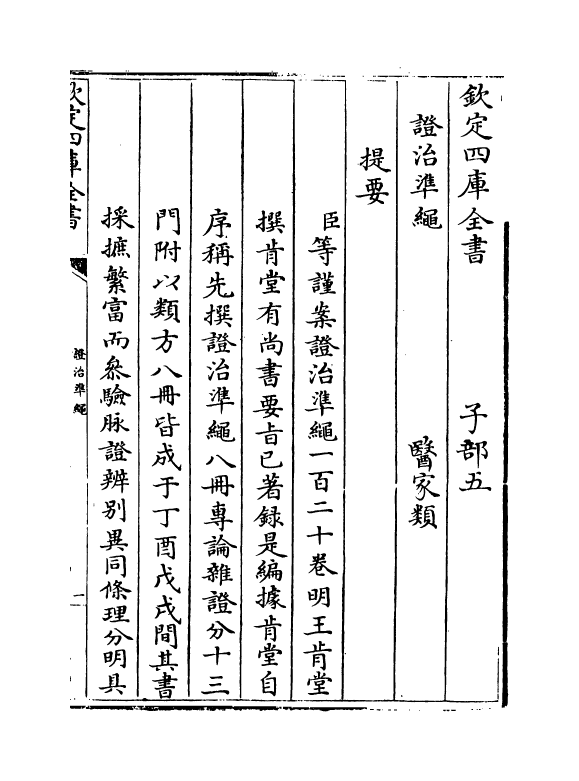 欽定四庫全書　　　　子部五
證治準繩　　　　　　醫家類
提要
臣等謹案證治準繩一百二十卷明王肯堂
撰肯堂有尚書要旨已著録是編據肯堂自
序稱先撰證治準繩八冊專論雜證分十三
門附以類方八冊皆成于丁酉戊戌間其書
採摭繁富而叅驗脉證辨别異同條理分明具
欽定四庫全書
證治準繩
一